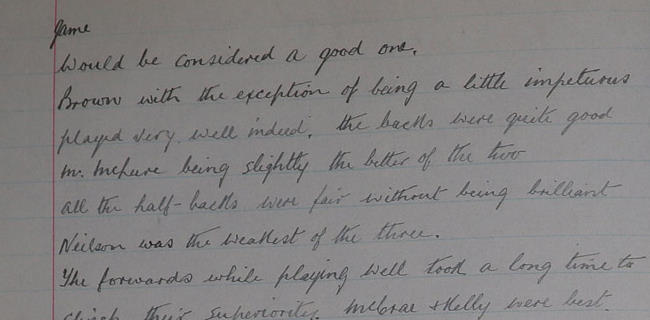 game
Would be considered a good one.
Brown with the exception of being a little impetuous
played very well indeed. The backs were quite good
Mr. McLure being slightly the better of the two
all the half-backs were fair without being brilliant
Neilson was the weakest of the three.
The forwards while playing well took a long time to
clinch their superiority. McCrae & Kelly were best.